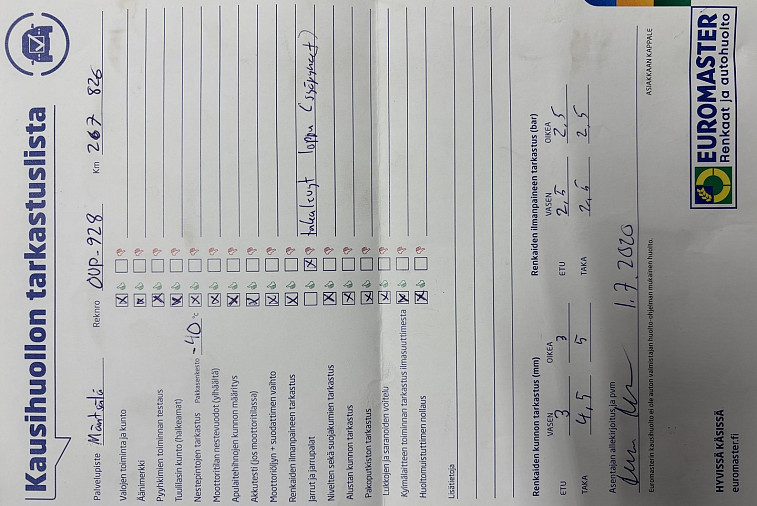 Kausihuollon tarkastuslista
Palvelupiste Mäntsälä Reknro OUP-928 Km 267 826
Valojen toiminta ja kunto
Äänimerkki
Pyyhkimien toiminnan testaus
Tuulilasin kunto (halkeamat)
Nestepintojen tarkastus Pakkasenkesto -40 °C
Moottoritilan nestevuodot (ylhäältä)
Apulaitehihnojen kunnon määritys
Akkutesti (jos moottoritilassa)
Moottoriöljyn + suodattimen vaihto
Renkaiden ilmanpaineen tarkastus
Jarrut ja jarrupalat takalevyt loppu (syöpyneet)
Nivelten sekä suojakumien tarkastus
Alustan kunnon tarkastus
Pakoputkiston tarkastus
Lukkojen ja saranoiden voitelu
Kylmälaitteen toiminnan tarkastus ilmasuuttimesta
Huoltomuistuttimen nollaus
Lisätietoja
Renkaiden kunnon tarkastus (mm) Renkaiden ilmanpaineen tarkastus (bar)
VASEN OIKEA VASEN OIKEA
ETU 3 3 ETU 2,5 2,5
TAKA 4,5 5 TAKA 2,5 2,5
Asentajan allekirjoitus ja pvm
1.7.2020
Euromasterin kausihuolto ei ole auton valmistajan huolto-ohjelman mukainen huolto.
ASIAKKAAN KAPPALE
HYVISSÄ KÄSISSÄ
euromaster.fi
EUROMASTER
Renkaat ja autohuolto